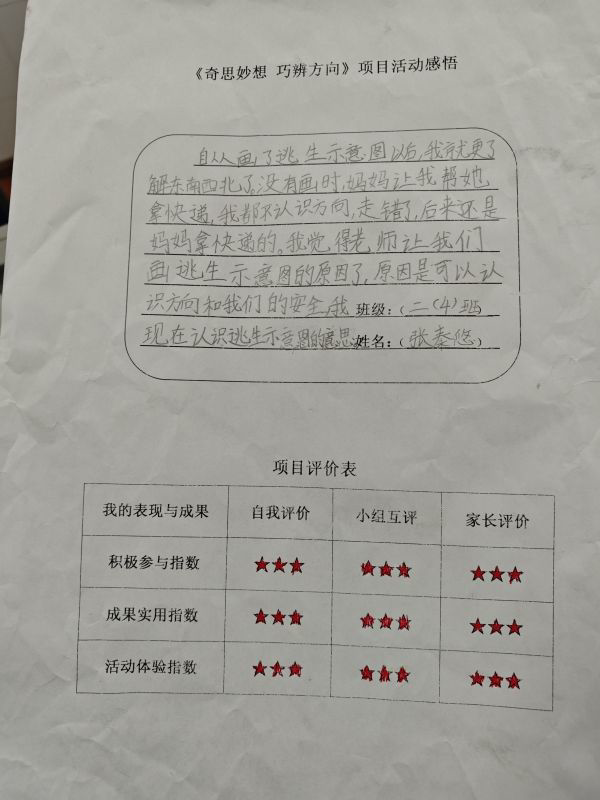 《奇思妙想 巧辨方向》项目活动感悟
自从画了逃生示意图以后,我就更了
解东南西北了,没有画时,妈妈让我帮她
拿快递,我都不认识方向,走错了,后来还是
妈妈拿快递的。我觉得老师让我们
画逃生示意图的原因了,原因是可以认
识方向和我们的安全,我 班级:(二(4)班
现在认识逃生示意图的意思 姓名:(张秦悠)
项目评价表
我的表现与成果 自我评价 小组互评 家长评价
积极参与指数 ★★★ ★★★ ★★★
成果实用指数 ★★★ ★★★ ★★★
活动体验指数 ★★★ ★★★ ★★★